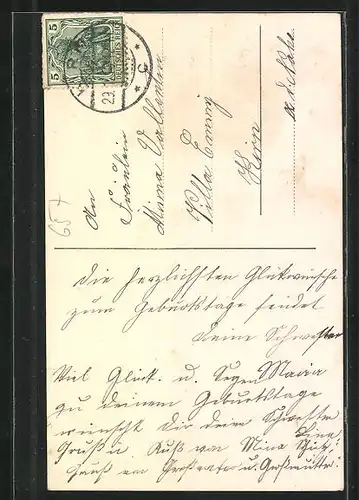 5 5
DEUTSCHES REICH
29
c
657
An
Fräulein
Mina
Villa Emmy
Kirn
a. d. Nahe
Die herzlichsten Glückwünsche
zum Geburtstage sendet
Deine Schwester
Maria
Viel Glück. u. Segen
zu deinem Geburtstage
wünscht Dir deine Schwester
Lina
Gruß u. Kuß von Mina
Gruß von Großvater u. Großmutter!